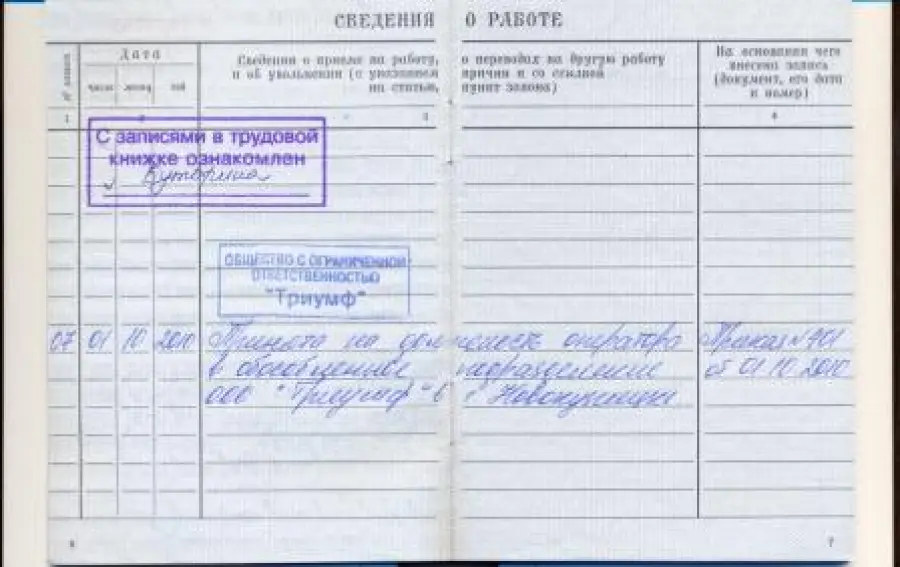 СВЕДЕНИЯ О РАБОТЕ
№ записи
Дата
число месяц год
Сведения о приеме на работу, о переводах на другую работу
и об увольнении (с указанием причин и со ссылкой
на статью, пункт закона)
На основании чего
внесена запись
(документ, его дата
и номер)
1 2 3 4
С записями в трудовой
книжке ознакомлен
ОБЩЕСТВО С ОГРАНИЧЕННОЙ
ОТВЕТСТВЕННОСТЬЮ
"Триумф"
07 01 10 2010 Принята на должность оператора Приказ №
в обособленное подразделение от 01 10 2010
ООО "Триумф" в г Новокузнецке
6 7